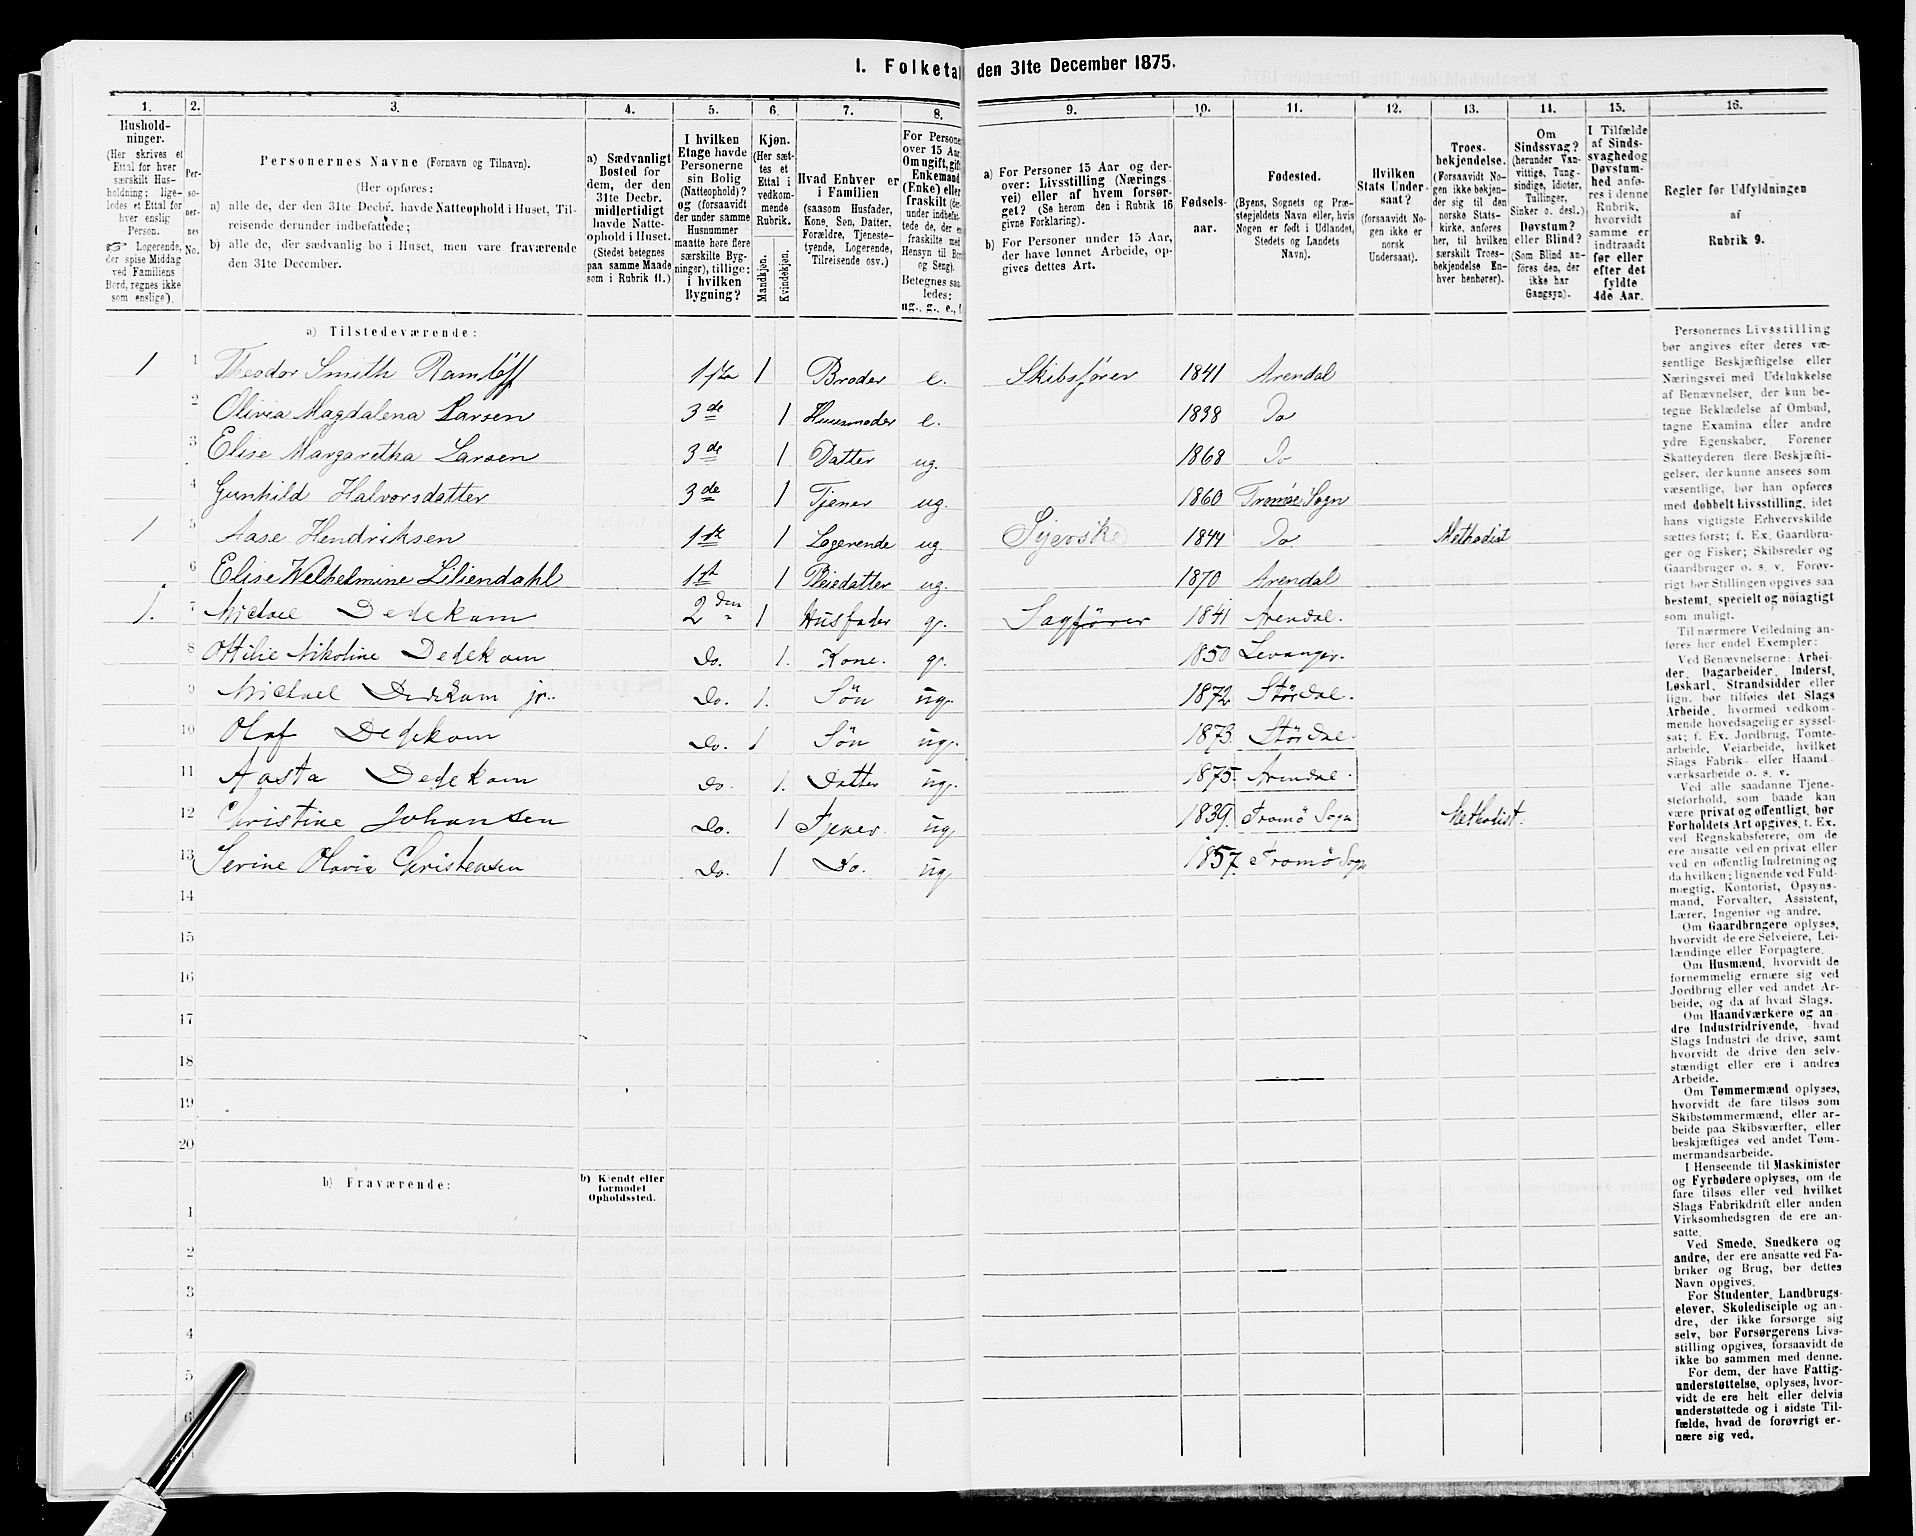 I. Folketal den 31te December 1875.
1.
Hushold-
ninger.
(Her skrives et
Ettal for hver
særskilt Hus-
holdning; lige-
ledes et Ettal for
hver enslig
Person.
☞ Logerende,
der spise Middag
ved Familiens
Bord, regnes ikke
som enslige).
2.
Per-
so-
ner-
nes
No.
3.
Personernes Navne (Fornavn og Tilnavn).
(Her opføres:
a) alle de, der den 31te Decbr. havde Natteophold i Huset, Til-
reisende derunder indbefattede;
b) alle de, der sædvanlig bo i Huset, men vare fraværende
den 31te December.
4.
a) Sædvanligt
Bosted for
dem, der den
31te Decbr.
midlertidigt
havde Natte-
ophold i Huset.
(Stedet betegnes
paa samme Maade
som i Rubrik 11.)
5.
I hvilken
Etage havde
Personerne
sin Bolig
(Natteophold)?
og (forsaavidt
der under samme
Husnummer
maatte høre flere
særskilte Byg-
ninger), tillige:
i hvilken
Bygning?
6.
Kjøn.
(Her sæt-
tes et
Ettal i
vedkom-
mende
Rubrik.
Mandkjøn.
Kvindekjøn.
7.
Hvad Enhver er
i Familien
(saasom Husfader,
Kone, Søn, Datter,
Forældre, Tjeneste-
tyende, Logerende,
Tilreisende osv.)
8.
For Persone
over 15 Aar
Om ugift, gift
Enkemand
(Enke) eller
fraskilt (der-
under indbefat-
tede de, der er
fraskilte med
Hensyn til Bord
og Seng).
Betegnes saa-
ledes:
ug., g., e., f.
9.
a) For Personer 15 Aar og der-
over: Livsstilling (Nærings-
vei) eller af hvem forsør-
get? (Se herom den i Rubrik 16
givne Forklaring).
b) For Personer under 15 Aar,
der have lønnet Arbeide, op-
gives dettes Art.
10.
Fødsels-
aar.
11.
Fødested.
(Byens, Sognets og Præ-
stegjeldets Navn eller, hvis
Nogen er født i Udlandet,
Stedets og Landets
Navn).
12.
Hvilken
Stats Under-
saat?
(forsaavidt No-
gen ikke er
norsk
Undersaat).
13.
Troes-
bekjendelse.
(Forsaavidt No-
gen ikke bekjen-
der sig til den
norske Stats-
kirke, anføres
her, til hvilken
særskilt Troes-
bekjendelse En-
hver henhører).
14.
Om
Sindssvag?
(herunder Van-
vittige, Tung-
sindige, Idioter,
Tullinger,
Sinker o. desl.)
Døvstum?
eller Blind?
(Som Blind an-
føres den, der
ikke har
Gangsyn).
15.
I Tilfælde
af Sinds-
svaghed og
Døvstum-
hed anfø-
res i denne
Rubrik,
hvorvidt
samme er
indtraadt
før eller
efter det
fyldte
4de Aar.
16.
Regler før Udfyldningen
af
Rubrik 9.
a) Tilstedeværende:
1 1 Theodor Smith Ramløff 1ste 1 Broder e. Skibsfører 1841 Arendal
2 Olivia Magdalena Larsen 3de 1 Husmoder e. 1838 Do
3 Elise Margaretha Larsen 3de 1 Datter ug. 1868 Do
4 Gunhild Halvorsdatter 3de 1 Tjener ug. 1860 Tromøe Sogn
1 5 Aase Hendriksen 1ste 1 Logerende ug. Syerske 1844 Do. Methodist
6 Elise Welhelmine Liliendahl 1st 1 Pleiedatter ug. 1870 Arendal
1. 7 Michael Dedekam 2den 1 Husfader g. Sagfører 1841 Arendal.
8 Ottilie Nikoline Dedekam Do. 1. Kone. g. 1850 Levanger.
9 Michael Dedekam jr. Do. 1. Søn ug. 1872 Størdal.
10 Olaf Dedekam Do. 1 Søn ug. 1873. Størdal.
11 Aasta Dedekam Do. 1. Datter ug. 1875. Arendal.
12 Christine Johansen Do. 1 Tjener. ug. 1839. Tromø Sogn Methodist.
13 Serine Olavia Christensen Do. 1 Do. ug. 1857. Tromø Sogn
14
15
16
17
18
19
20
b) Fraværende:
b) Kjendt eller
formodet
Opholdssted.
1
2
3
4
5
6
Personernes Livsstilling
bør angives efter deres væ-
sentlige Beskjæftigelse eller
Næringsvei med Udelukkelse
af Benævnelser, der kun be-
tegne Beklædelse af Ombud,
tagne Examina eller andre
ydre Egenskaber. Forener
Skatteyderen flere Beskjæfti-
gelser, der kunne ansees som
væsentlige, bør han opføres
med dobbelt Livsstilling, idet
hans vigtigste Erhvervskilde
sættes først; f. Ex. Gaardbru-
ger og Fisker; Skibsreder og
Gaardbruger o. s. v. Forøv-
rigt bør Stillingen opgives saa
bestemt, specielt og nøiagtigt
som muligt.
Til nærmere Veiledning an-
føres her endel Exempler:
Ved Benævnelserne: Arbei-
der, Dagarbeider, Inderst,
Løskarl, Strandsidder eller
lign. bør tilføies det Slags
Arbeide, hvormed vedkom-
mende hovedsagelig er syssel-
sat; f. Ex. Jordbrug, Tomte-
arbeide, Veiarbeide, hvilket
Slags Fabrik- eller Haand-
værksarbeide o. s. v.
Ved alle saadanne Tjene-
steforhold, som baade kan
være privat og offentligt, bør
Forholdets Art opgives, t. Ex.
ved Regnskabsførere, om de
ere ansatte ved en privat eller
ved en offentlig Indretning og
da hvilken; lignende ved Fuld-
mægtig, Kontorist, Opsyns-
mand, Forvalter, Assistent,
Lærer, Ingeniør og andre.
Om Gaardbrugere oplyses,
hvorvidt de ere Selveiere, Lei-
lændinge eller Forpagtere.
Om Husmænd, hvorvidt de
fornemmelig ernære sig ved
Jordbrug eller ved andet Ar-
beide, og da af hvad Slags.
Om Haandværkere og an-
dre Industridrivende, hvad
Slags Industri de drive, samt
hvorvidt de drive den selv-
stændigt eller ere i andres
Arbeide.
Om Tømmermænd oplyses,
hvorvidt de fare tilsøs som
Skibstømmermænd, eller ar-
beide paa Skibsværfter, eller
beskjæftiges ved andet Tøm-
mermandsarbeide.
I Henseende til Maskinister
og Fyrbødere oplyses, om de
fare tilsøs eller ved hvilket
Slags Fabrikdrift eller anden
Virksomhedsgren de ere an-
satte.
Ved Smede, Snedkere og
andre, der ere ansatte ved Fa-
briker og Brug, bør dettes
Navn opgives.
For Studenter, Landbrugs-
elever, Skoledisciple og an-
dre, der ikke forsørge sig
selv, bør Forsørgerens Livs-
stilling opgives, forsaavidt de
ikke bo sammen med denne.
For dem, der have Fattig-
understøttelse, oplyses, hvor-
vidt de ere helt eller delvis
understøttede og i sidste Til-
fælde, hvad de forøvrigt er-
nære sig ved.